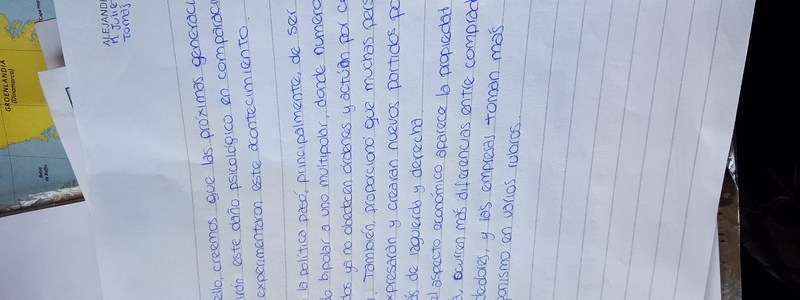 ALEJAND
Tomás
GROENLANDIA
(Dinamarca)
ello, creemos que las próximas generaci
rán este daño psicológico en comparaci
experimentaron este acontecimiento.
la política pasó, principalmente, de ser
do bipolar a uno multipolar, donde numero
dos ya no obedecen órdenes y actúan por c
. También, proporcionó que muchas pers
xpresarán y crearían nuevos partidos po
ás de izquierda y derecha.
al aspecto económico aparece la propiedad
a, ocurren más diferencias entre comprad
dedores, y las empresas toman más
gonismo en varios rubros.